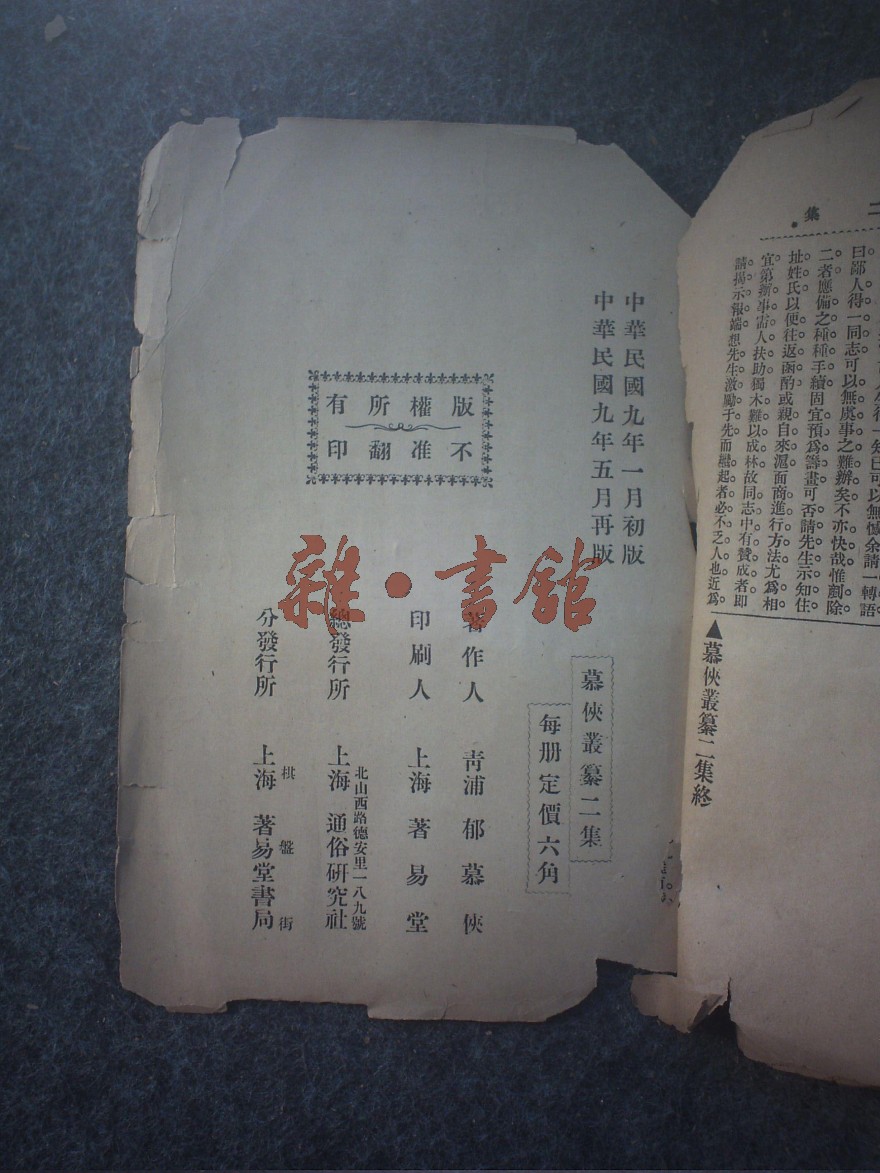 二集
曰鄙人得一同志可以無虞事之難辦矣不亦快哉惟剷除
二者應備之種種手續固宜預爲籌畫可否請先生示知住
址姓氏以便往返函酌或親自來滬面商進行方法尤爲相
宜第辦事需人扶助獨木難以成林故同志中有贊成者即
請揭示報端想先生激勵于先而繼起者必不乏人也近爲
▲慕俠叢纂二集終
中華民國九年一月初版
中華民國九年五月再版
慕俠叢纂二集
每册定價六角
版權所有
不准翻印
著作人 青浦郁慕俠
印刷人 上海著易堂
總發行所 上海 北山西路德安里一八九號 通俗研究社
分發行所 上海 棋盤街 著易堂書局
雜·書館